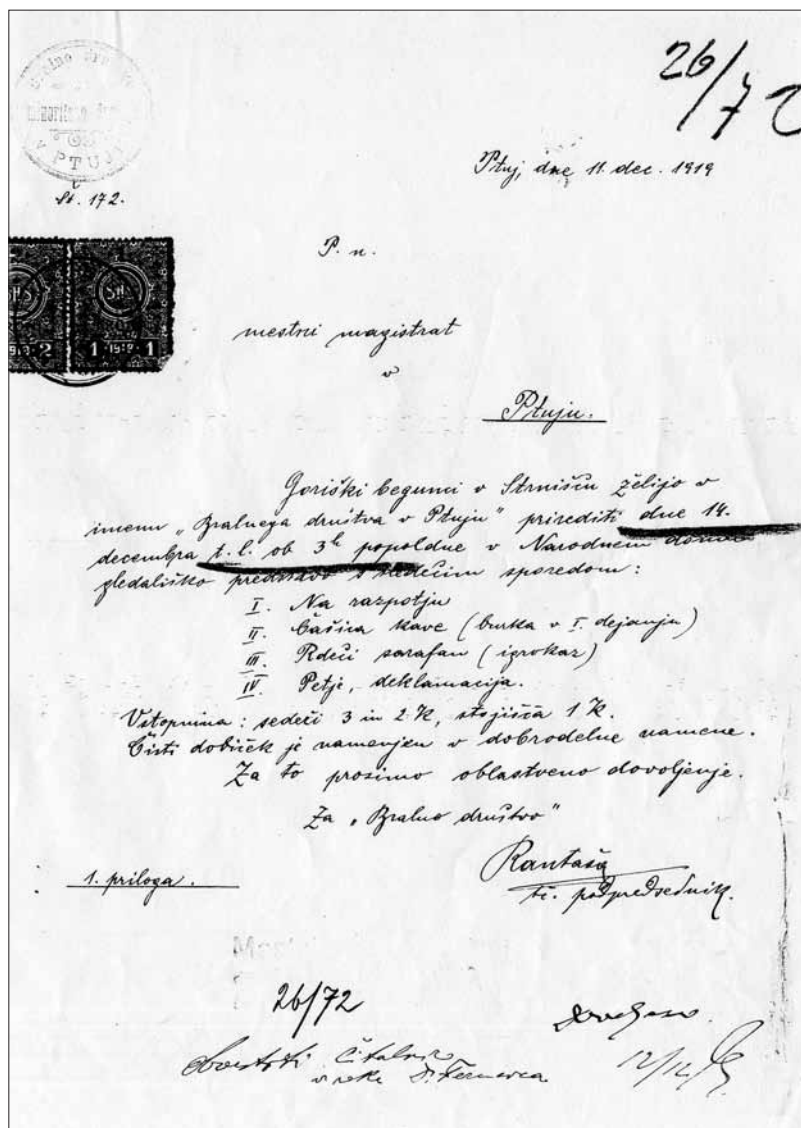 26/72
PTUJ
Ptuj, dne 11. dec. 1919
Št. 172.
P. n.
SHS SHS
1919 2 1 1919 1
mestni magistrat
v
Ptuju.
Goriški begunci v Strnišču želijo v
imenu „Bralnega društva v Ptuju" prirediti dne 14.
decembra t. l. ob 3h popoldne v Narodnem domu
gledališko predstavo s sledečim sporedom:
I. Na razpotju
II. Čašica kave (burka v I. dejanju)
III. Rdeči sarafan (igrokaz)
IV. Petje, deklamacija.
Vstopnina: sedeži 3 in 2 K, stojišča 1 K.
Čisti dobiček je namenjen v dobrodelne namene.
Za to prosimo oblastveno dovoljenje.
Za „Bralno društvo"
1. priloga.
podpredsednik.
26/72
Čitalnico
v roke
12/12